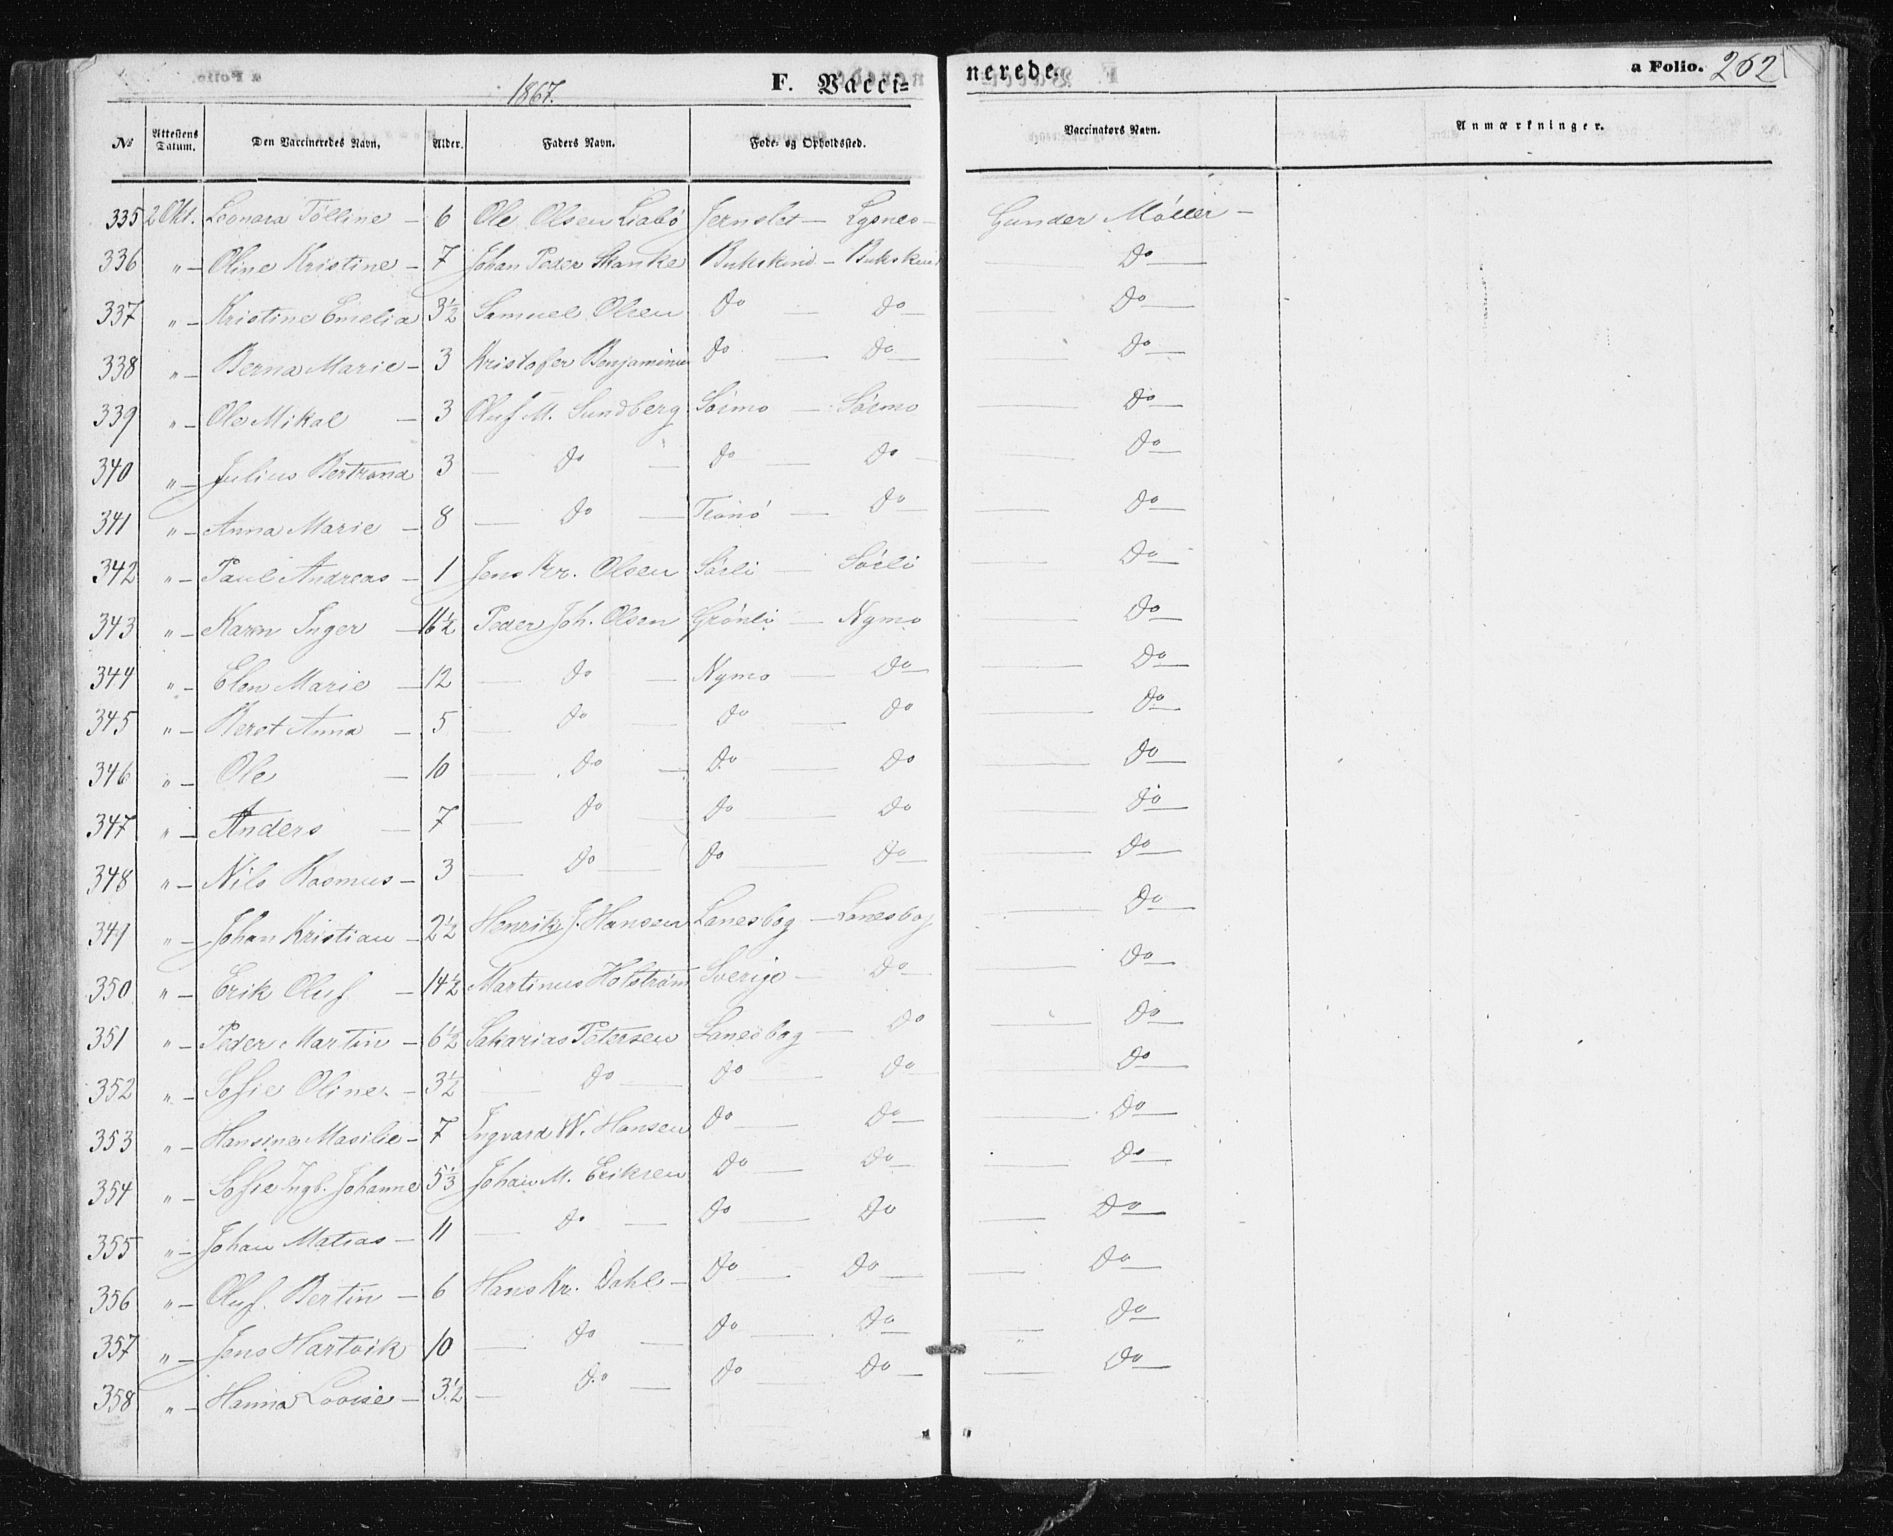 1867.
F. Vacci=
nerede.
a Folio. 262
№ Attestens Datum. Den Vaccineredes Navn, Alder. Faders Navn. Føde- og Opholdssted. Vaccinators Navn. Anmærkninger.
335 2 Okt. Leonara Tølline — 6 Ole Olsen Liabø Jernslet — Lysnes — Gunder Møller —
336 " — Oline Kristine — 7 Johan Peder Skanke Bukskind — Bukskind — Do —
337 " — Kristine Emelia 3½ Samuel Olsen Do — Do — — Do —
338 " — Berna Marie — 3 Kristofer Benjaminse Do — Do — — Do —
339 " — Ole Mikal — 3 Oluf M. Sundberg Sørmo — Sørmo — Do —
340 " — Julius Bertrand 3 — Do — Do — Do — — Do —
341 " — Anna Marie — 8 — Do — Tranø — Do — — Do —
342 " — Paul Andreas — 1 Jens Kr. Olsen Sørli — Sørli — Do —
343 " — Karen Inger — 16½ Peder Joh. Olsen Grønli — Nymo — Do —
344 " — Elen Marie — 12 — Do — Nymo — Do — — Do —
345 " — Beret Anna — 5 — Do — Do — Do — Do —
346 " — Ole — 10 — Do — Do — Do — Do —
347 " — Anders — 7 — Do — Do — Do — Do —
348 " — Nils Rasmus — 3 — Do — Do — Do — — Do —
349 " — Johan Kristian — 2½ Henrik J. Hansen Lanesbog — Lanesbog — Do —
350 " — Erik Oluf — 14½ Martinus Holstrøm Sverige — Do — — Do —
351 " — Peder Martin — 6½ Sakarias Petersen Lanesbog — Do — Do —
352 " — Sofie Oline — 3½ — Do — Do — Do — — Do —
353 " — Hansine Masilie — 7 Ingvard W. Hansen Do — Do — — Do —
354 " — Sofie Ingb. Johanne 5⅓ Johan M. Eriksen Do — Do — — Do —
355 " — Johan Matias — 11 — Do — Do — Do — Do —
356 " — Oluf Bertin — 6 Hans Kr. Dahl — Do — Do — — Do —
357 " — Jens Hartvik 10 — Do — Do — Do — — Do —
358 " — Hanna Lovise — 3½ — Do — Do — Do — — Do —